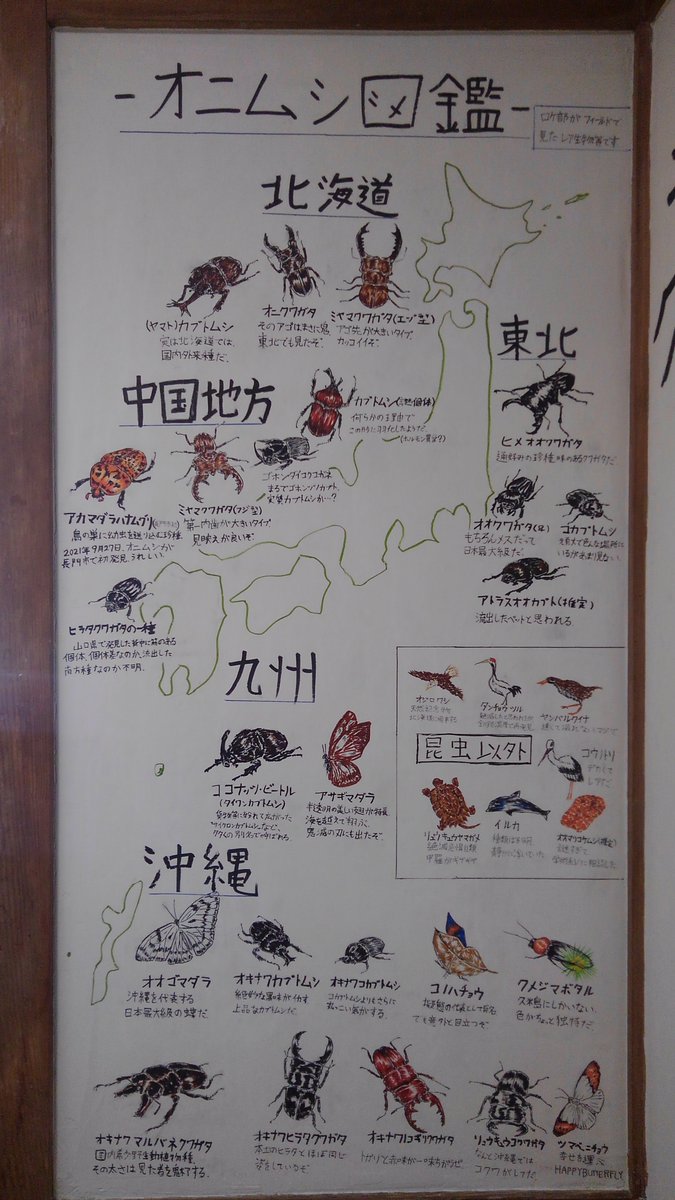 -オニムシ図鑑-
ロケ部がフィールドで
見たレア生物等です
北海道
(ヤマト)カブトムシ
実は北海道では、
国内外来種だ。
オニクワガタ
そのアゴはまさに鬼
東北でも見たぞ。
ミヤマクワガタ(エゾ型)
アゴ先が大きいタイプ。
カッコイイぞ。
東北
ヒメオオクワガタ
通好みの珍種 味のあるクワガタだ。
オオクワガタ(♀)
もちろんメスだって
日本最大級だ。
コカブトムシ
いるがあまり見ない。
アトラスオオカブト(推定)
流出したペットと思われる
中国地方
カブトムシ
何らかの理由で
アカマダラハナムグリ
鳥の巣に幼虫を送り込む珍種
2021年9月27日、オニムシが
長門市で初発見。うれしい。
ミヤマクワガタ(フジ型)
第一内歯が大きいタイプ
見映えが良いぞ。
ゴホンダイコクコガネ
まるでゴホンヅノカブト。
実質カブトムシか…?
ヒラタクワガタの一種
山口県で発見した背中に筋のある
個体、個体差なのか、流出した
南方種なのか不明。
九州
ココナッツ・ビートル
(タイワンカブトムシ)
アサギマダラ
半透明の美しい翅が特長
海を越えて翔ぶ。
鬼滅の刃にも出たぞ。
昆虫以外
オジロワシ
天然記念物
タンチョウヅル
ヤンバルクイナ
コウノトリ
デカくて
レアだ
リュウキュウヤマガメ
絶滅危惧II類
甲羅がギザギザ
イルカ
種類は不明
静かに泳いでいた
沖縄
オオゴマダラ
沖縄を代表する
日本最大級の蝶だ
オキナワカブトムシ
上品なカブトムシだ。
オキナワコカブトムシ
コカブトムシよりもさらに
コノハチョウ
擬態の代表として有名
でも意外と目立つぞ
クメジマボタル
久米島にしかいない。
色がちょっと独特だ。
オキナワマルバネクワガタ
国内希少野生動植物種
その太さは見た者を魅了する。
オキナワヒラタクワガタ
本土のヒラタとほぼ同じ
姿をしているぞ
オキナワノコギリクワガタ
リュウキュウコクワガタ
なんと沖縄では
コクワがレアだ。
ツマベニチョウ
幸せを運ぶ
HAPPYBUTTERFLY